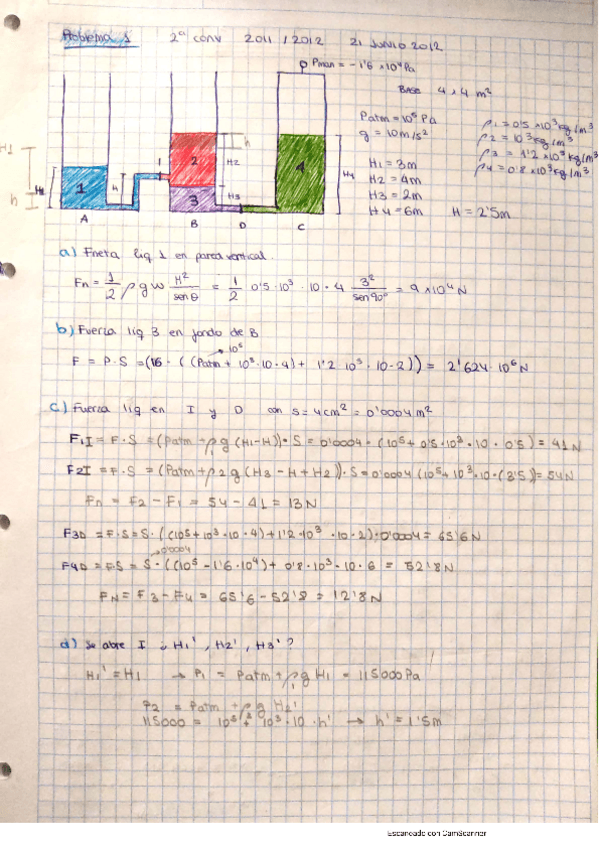 Problema 1 2ª conv 2011/2012 21 JUNIO 2012
Pman = -1'6 x10⁴ Pa
BASE 4 x 4 m²
Patm = 10⁵ Pa
g = 10 m/s²
ρ1 = 0'5 x10³ kg/m³
ρ2 = 10³ kg/m³
ρ3 = 1'2 x10³ kg/m³
ρ4 = 0'8 x10³ kg/m³
H1 = 3m
H2 = 4m
H3 = 2m
H4 = 6m H = 2'5m
H1 h H2 H3 H4 h
1 2 3 4 I
A B D C
a) Fneta liq 1 en pared vertical.
Fn = 1/2 ρ g w H²/sen θ = 1/2 0'5·10³·10·4 3²/sen 90º = 9 x10⁴ N
b) Fuerza liq 3 en fondo de B
10⁵
F = P·S = (16·((Patm + 10³·10·4) + 1'2 10³·10·2)) = 2'624·10⁶ N
c) Fuerza liq en I y D con S = 4cm² = 0'0004 m²
F1I = F·S = (Patm + ρ1 g (H1-H))·S = 0'0004·(10⁵ + 0'5·10³·10·0'5) = 41 N
F2I = F·S = (Patm + ρ2 g (H3 - H + H2))·S = 0'0004 (10⁵ + 10³·10·(3'5)) = 54N
Fn = F2 - F1 = 54 - 41 = 13 N
F3D = F·S = S·((10⁵ + 10³·10·4) + 1'2·10³·10·2)·0'0004 = 65'6 N
0'0004
F4D = F·S = S·((10⁵ - 1'6·10⁴) + 0'8·10³·10·6 = 52'8 N
FN = F3 - F4 = 65'6 - 52'8 = 12'8 N
d) Se abre I ¿ H1', H2', H3'?
H1' = H1 → P1 = Patm + ρ1 g H1 = 115000 Pa
P2 = Patm + ρ g H2'
115000 = 10⁵ + 10³·10·h' → h' = 1'5m
Escaneado con CamScanner